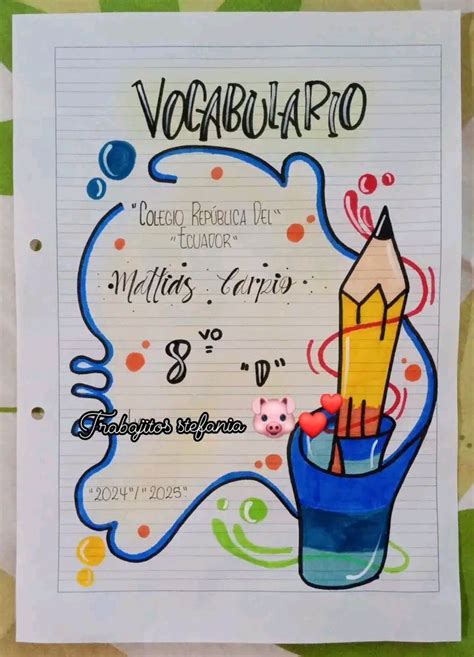 VOCABULARIO
"COLEGIO REPÚBLICA DEL"
"ECUADOR"
Mattias Carpio
8 vo "D"
Trabajitos stefania
"2024"/"2025"